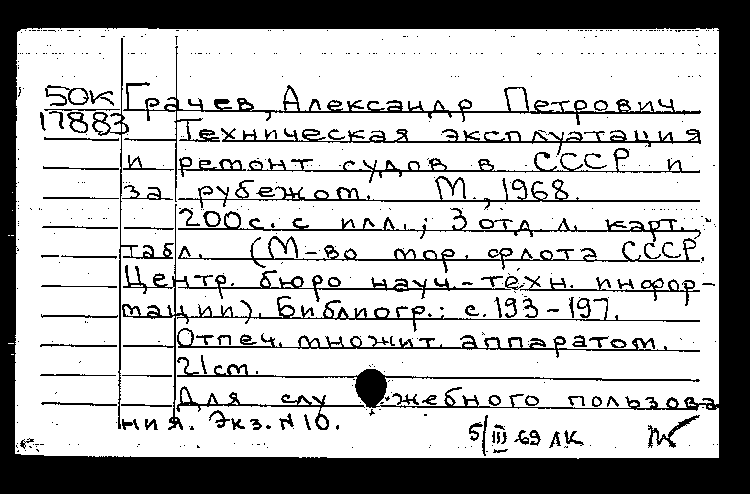 50К Грачев, Александр Петрович
17883 Техническая эксплуатация
и ремонт судов в СССР и
за рубежом. М., 1968.
200 с. с илл.; 3 отд. л. карт.,
табл. (М-во мор. флота СССР.
Центр. бюро науч.-техн. инфор-
мации). Библиогр.: с. 193-197.
Отпеч. множит. аппаратом.
21 см.
Для служебного пользова
ния. Экз. N 10.
5/III 69 ЛК